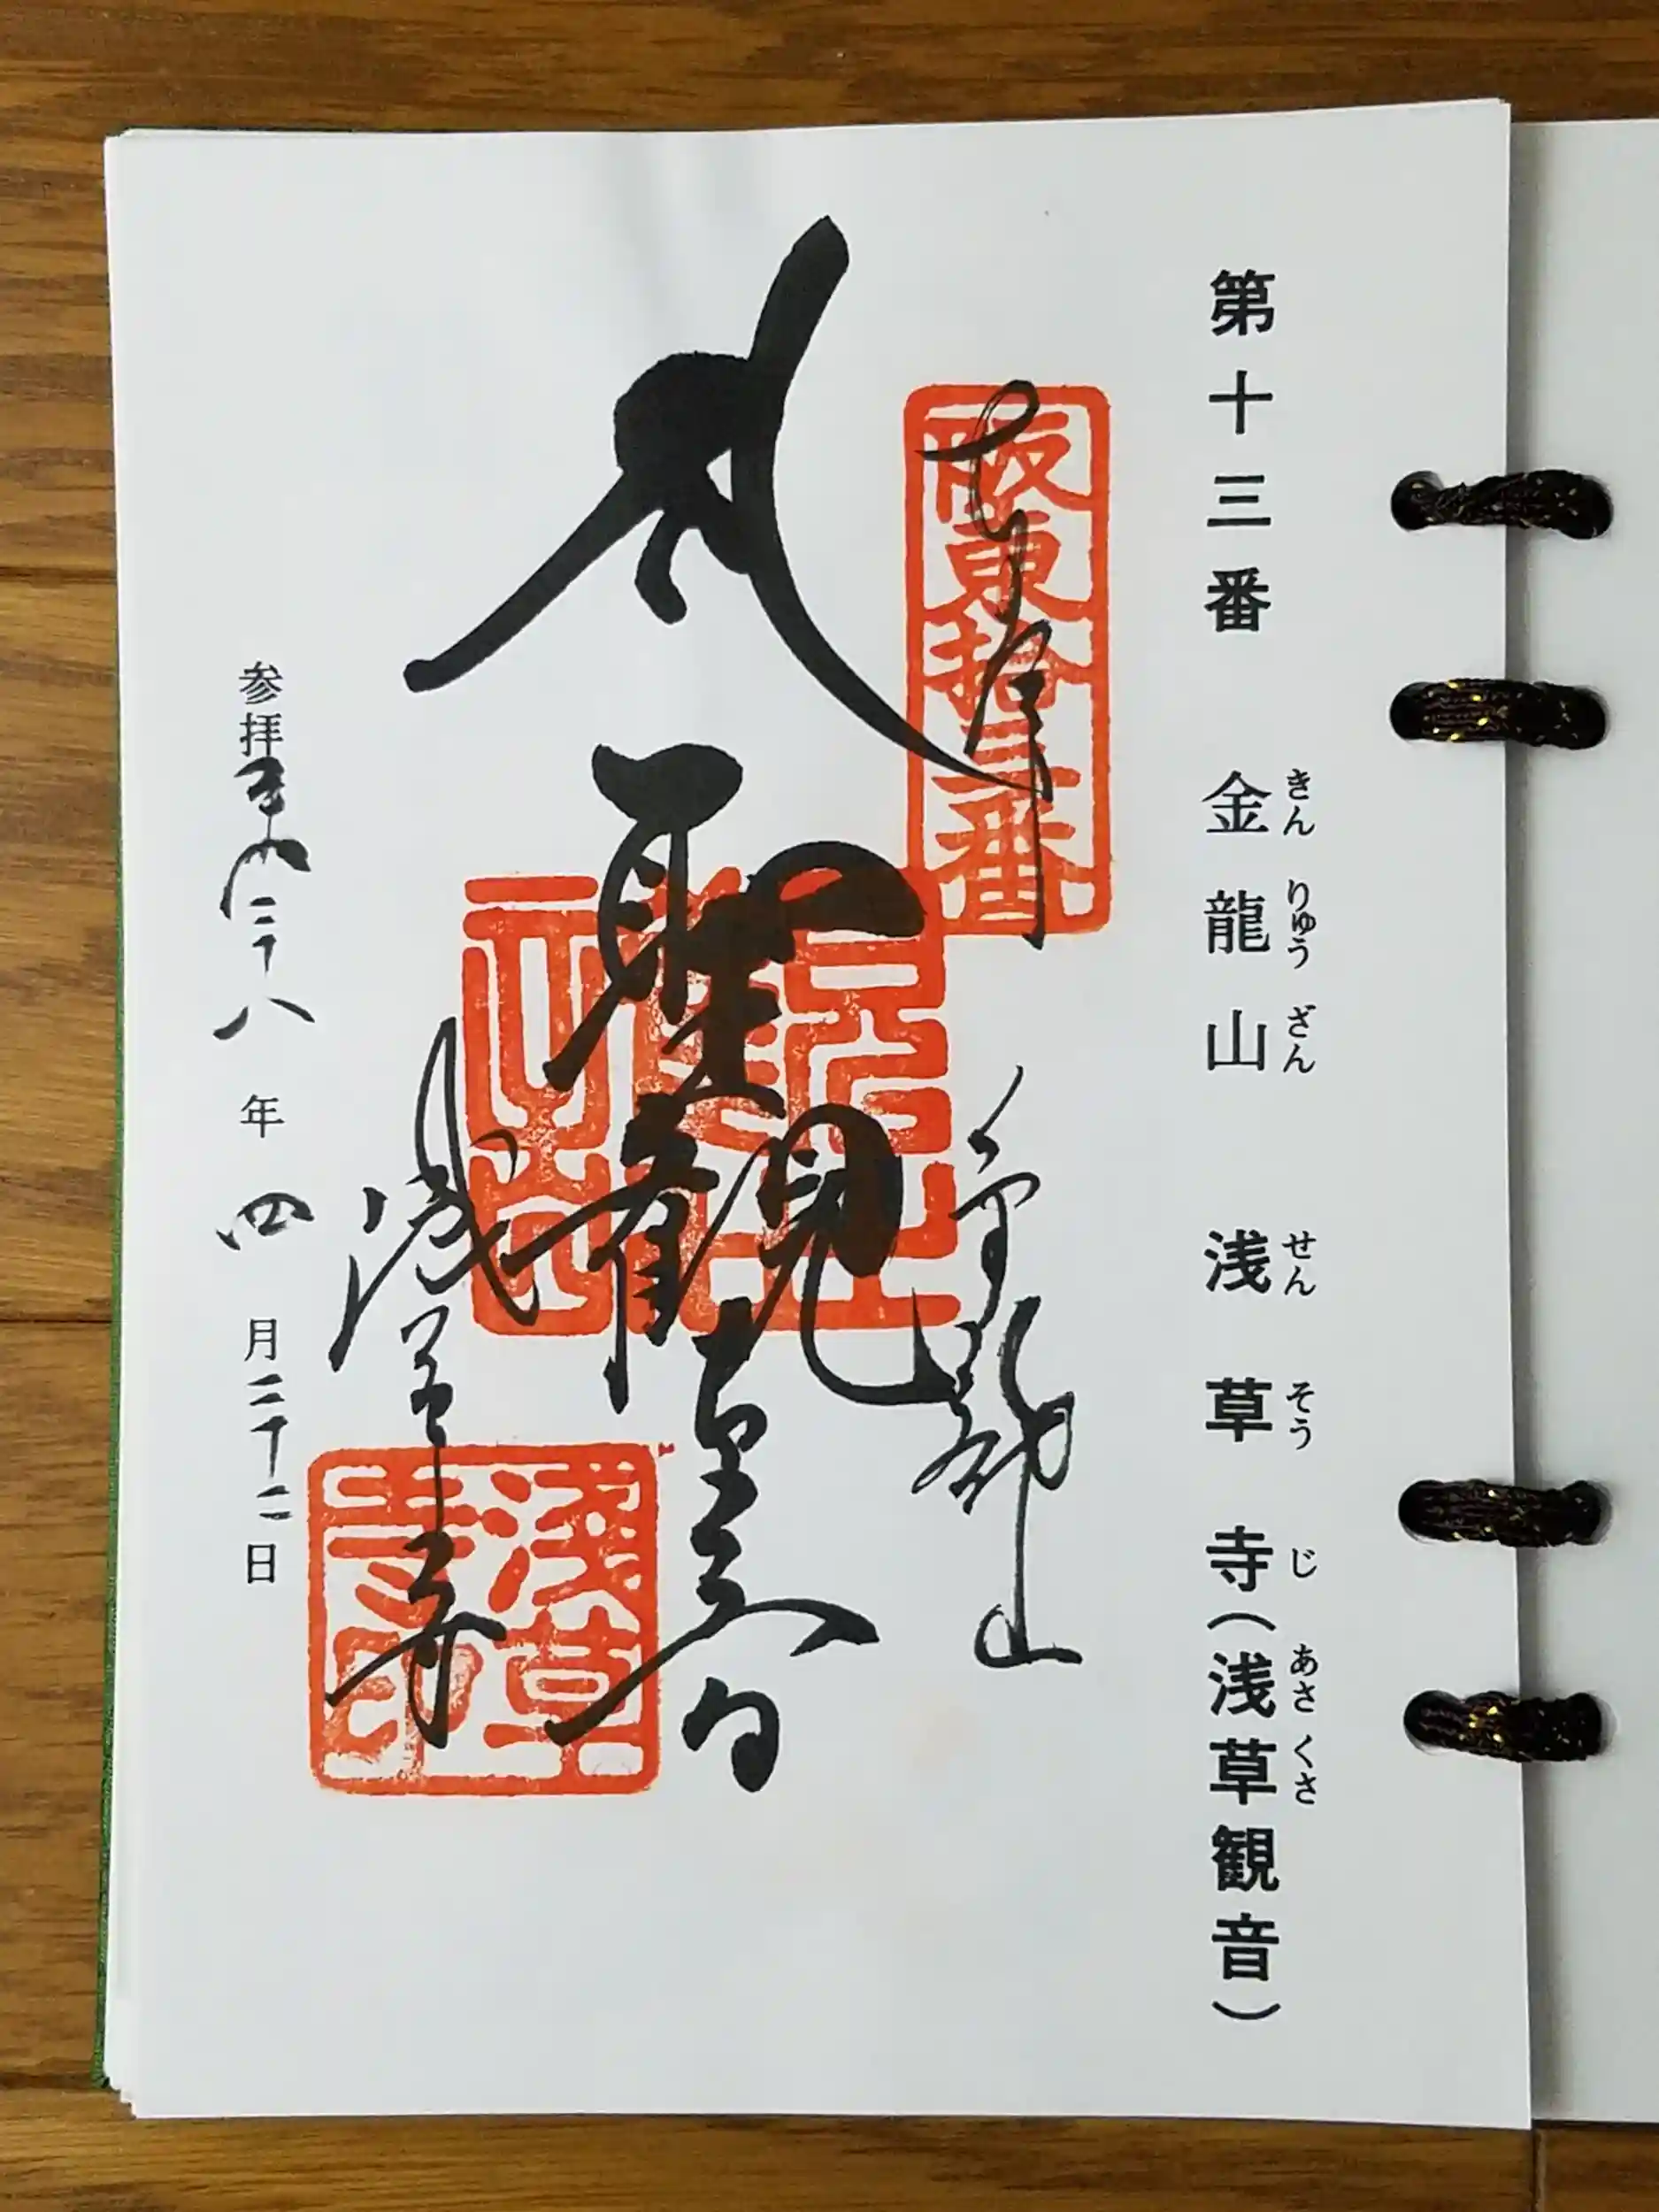 第十三番 金龍山 浅草寺(浅草観音)
きんりゅうざん せんそうじ あさくさ
阪東拾三番
奉拝
金龍山
聖観世音
浅草寺
浅草寺印
参拝平成二十八年四月二十二日